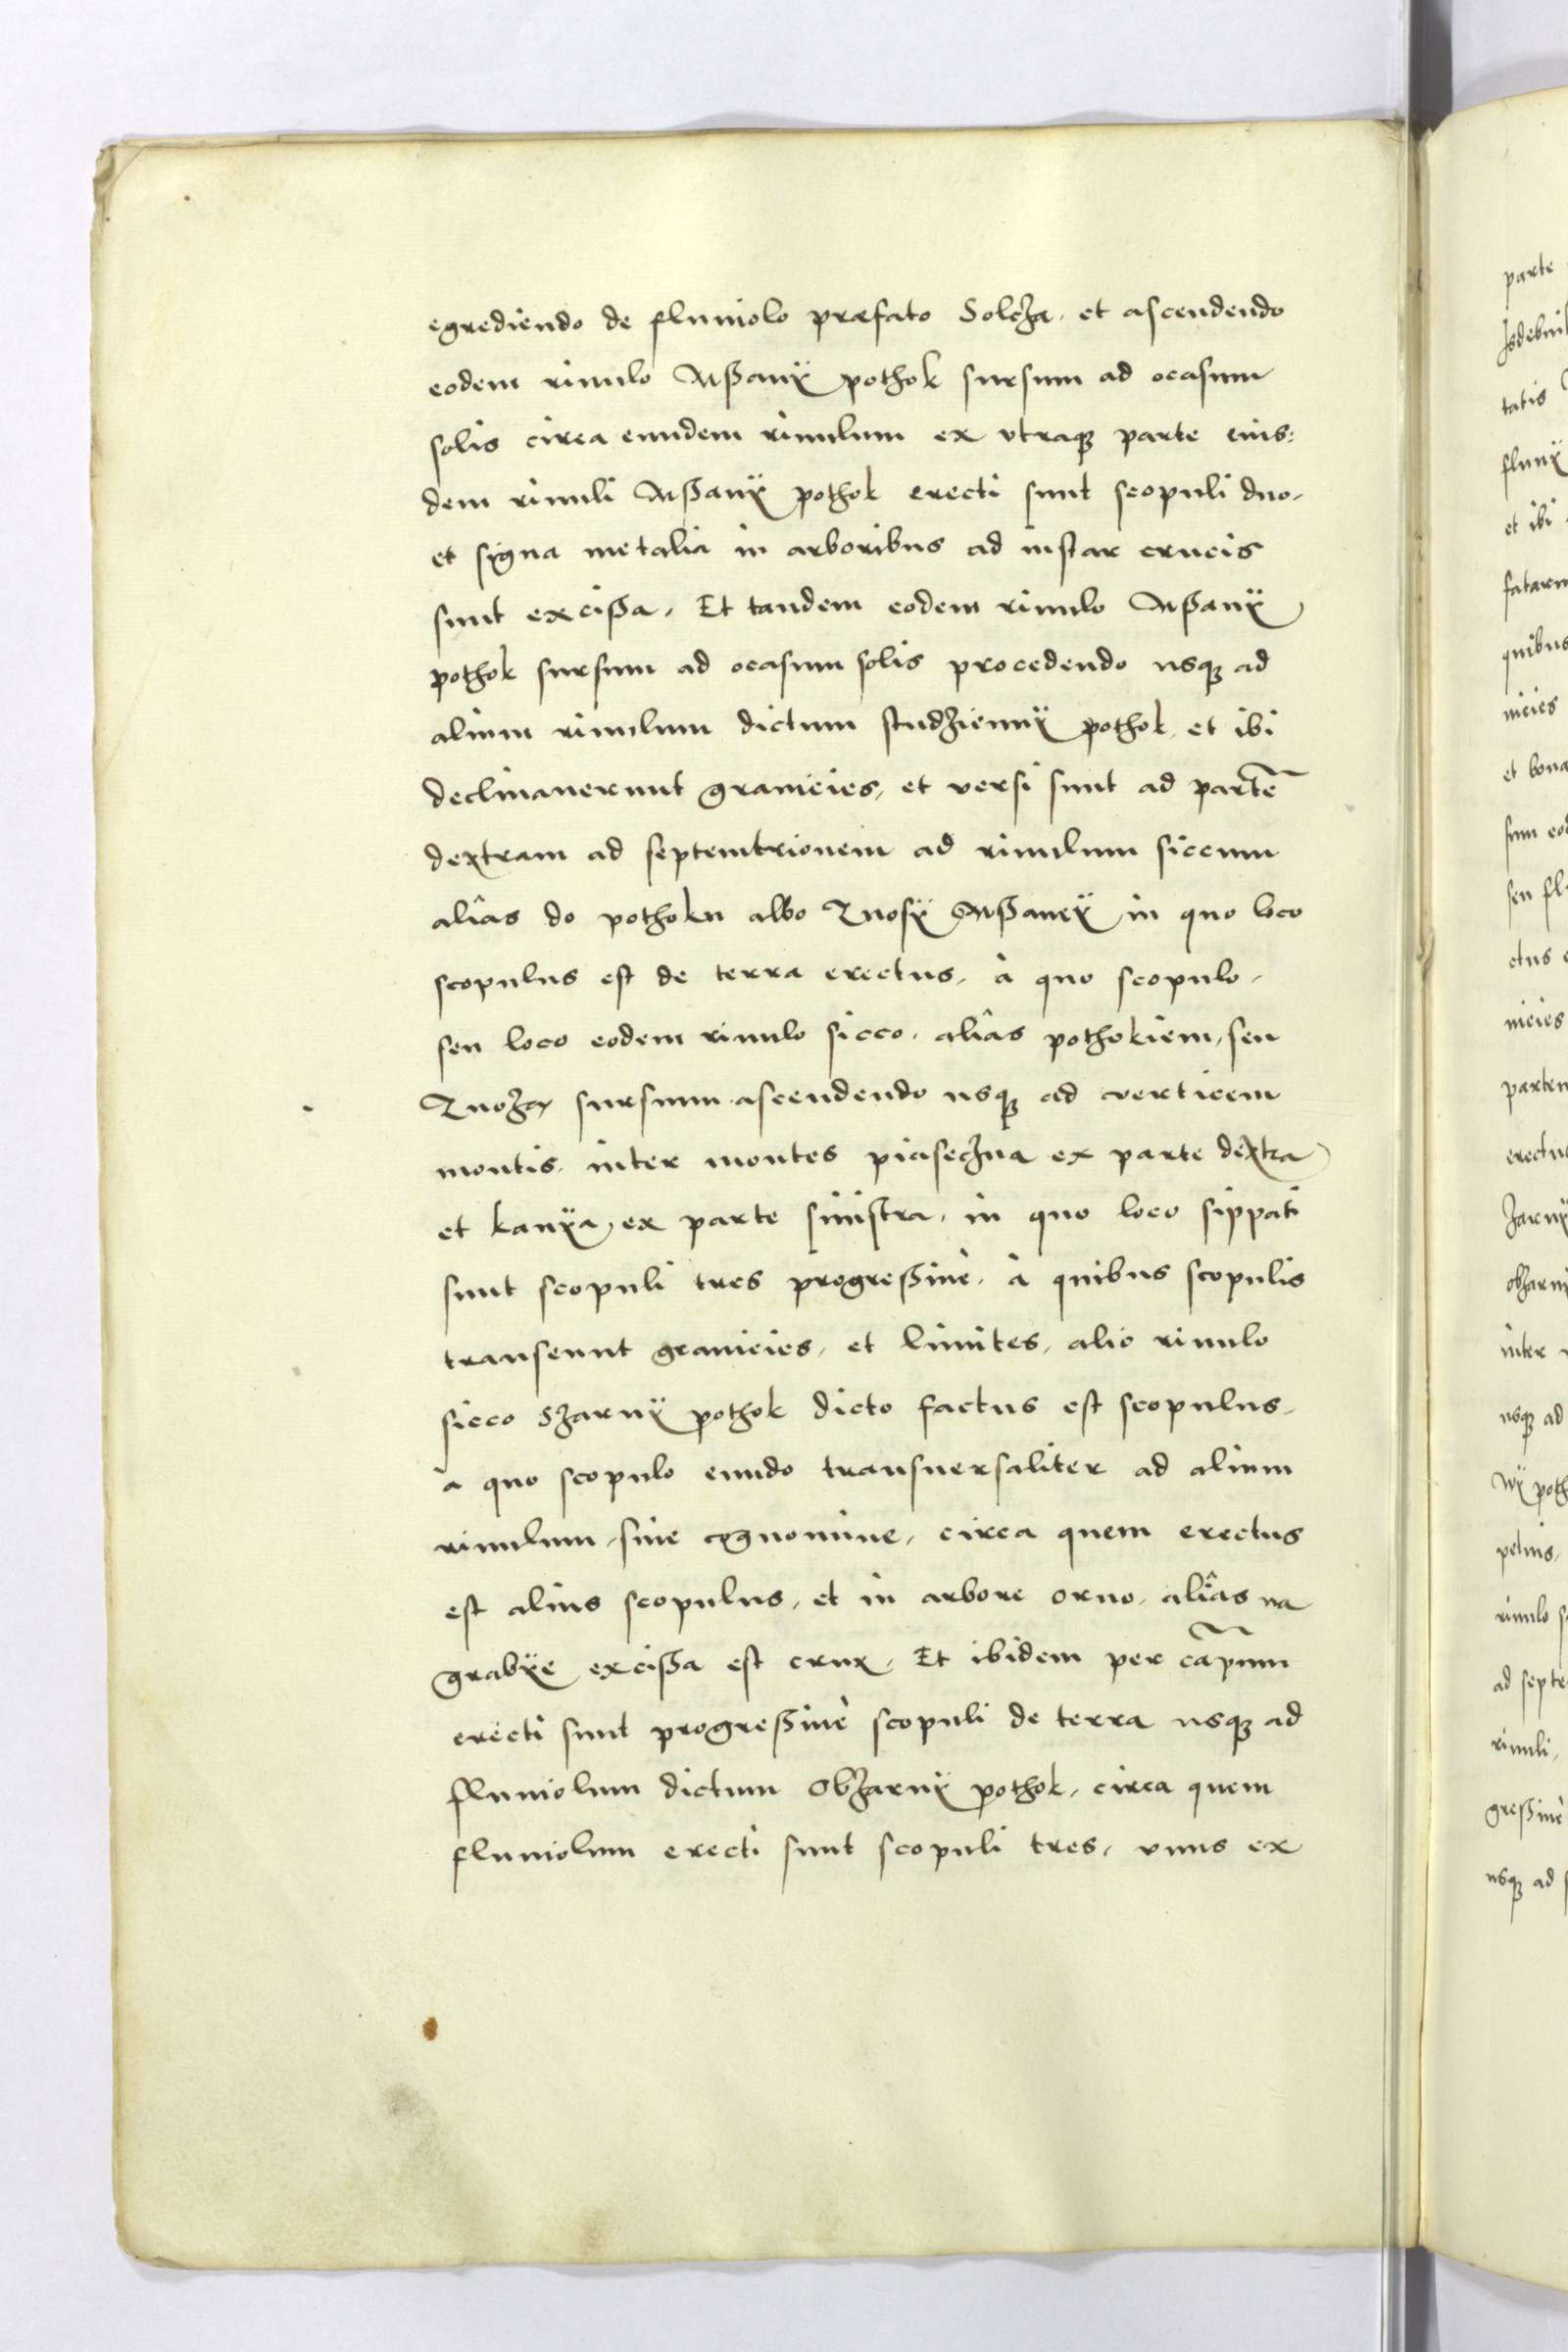 egrediendo de fluuiolo præfato Solcza, et ascendendo
eodem riuulo Mßanÿ pothok sursum ad ocasum
solis circa eundem riuulum ex vtraqz parte eius:
dem riuuli Mßanÿ pothok erecti sunt scopuli duo,
et signa metalia in arboribus ad instar crucis
sunt excißa, Et tandem eodem riuulo Mßanÿ
pothok sursum ad ocasum solis procedendo usqz ad
alium riuulum dictum studziennÿ pothok, et ibi
declinauerunt granicies, et versi sunt ad partē
dextram ad septemtrionem ad riuulum siccum
aliâs do pothoku albo Duosÿ Mßaneÿ in quo loco
scopulus est de terra erectus, à quo scopulo,
seu loco eodem riuulo sicco, aliâs pothokiem, seu
sursum ascendendo usqz ad verticem
montis, inter montes piaseczna ex parte dextra
et kanÿa, ex parte sinistra, in quo loco sippati
sunt scopuli tres progreßiuè, à quibus scopulis
transeunt granicies, et limites, alio riuulo
sicco Szarnÿ pothok dicto factus est scopulus,
à quo scopulo eundo transuersaliter ad alium
riuulum, sine cognomine, circa quem erectus
est alius scopulus, et in arbore orno, aliâs na
grabÿe excißa est crux, Et ibidem per cāpum
erecti sunt progreßiuè scopuli de terra usqz ad
fluuiolum dictum Obzarnÿ pothok, circa quem
fluuiolum erecti sunt scopuli tres, vnus ex
parte
tatis
et ibi
quibus
nicies
et bona
seu
ctus
nicies
erectus
zarnÿ
inter
usqz ad
wÿ poth
riuulo
ad septe
riuuli,
greßiuè
usqz ad